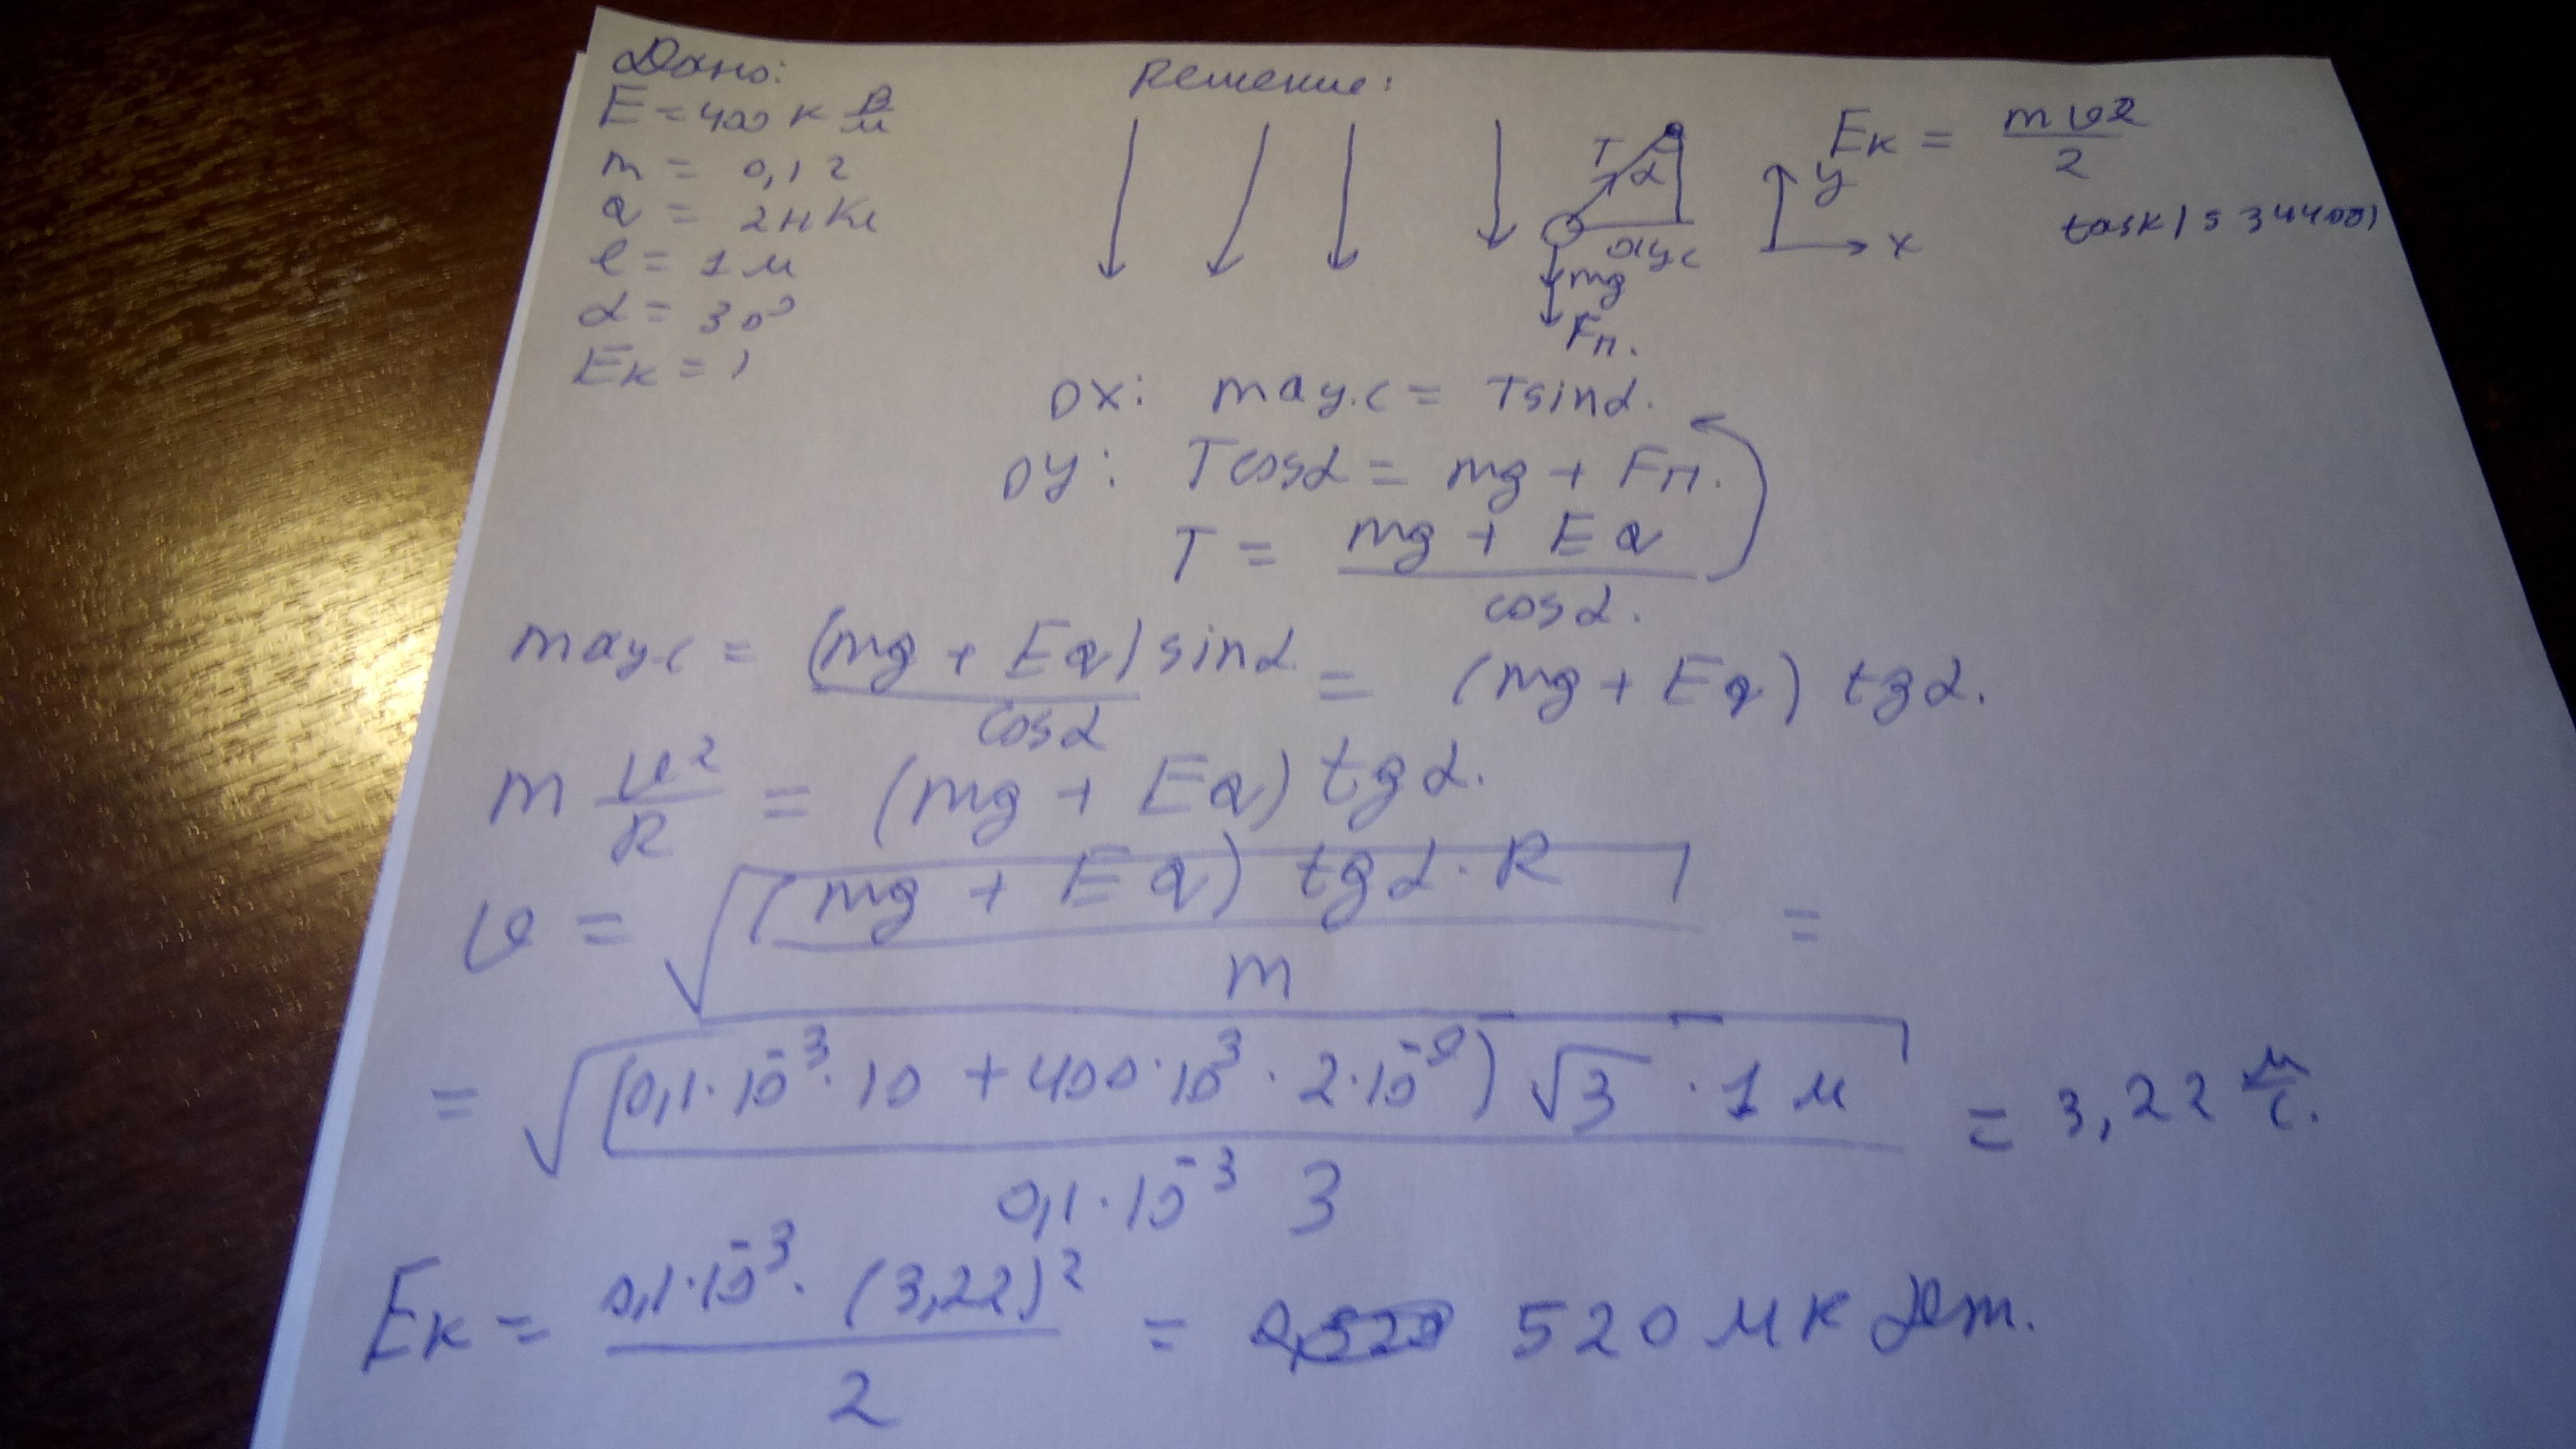 Дано:
E = 400 к В/м
m = 0,1 г
q = 2 нКл
l = 1 м
α = 30°
Eк = ?
Решение:
T
α
aц.с
mg
Fп.
y
x
Eк = mv²/2
task/
OX: maц.с = Tsinα.
OY: Tcosα = mg + Fп.
T = (mg + Eq)/cosα.
maц.с = (mg + Eq) sinα/cosα = (mg + Eq) tgα.
m v²/R = (mg + Eq) tgα.
v = √((mg + Eq) tgα · R/m) =
= √((0,1·10⁻³·10 + 400·10³·2·10⁻⁹) √3 · 1 м/0,1·10⁻³ 3) = 3,22 м/с.
Eк = 0,1·10⁻³·(3,22)²/2 = 520 мкДж.